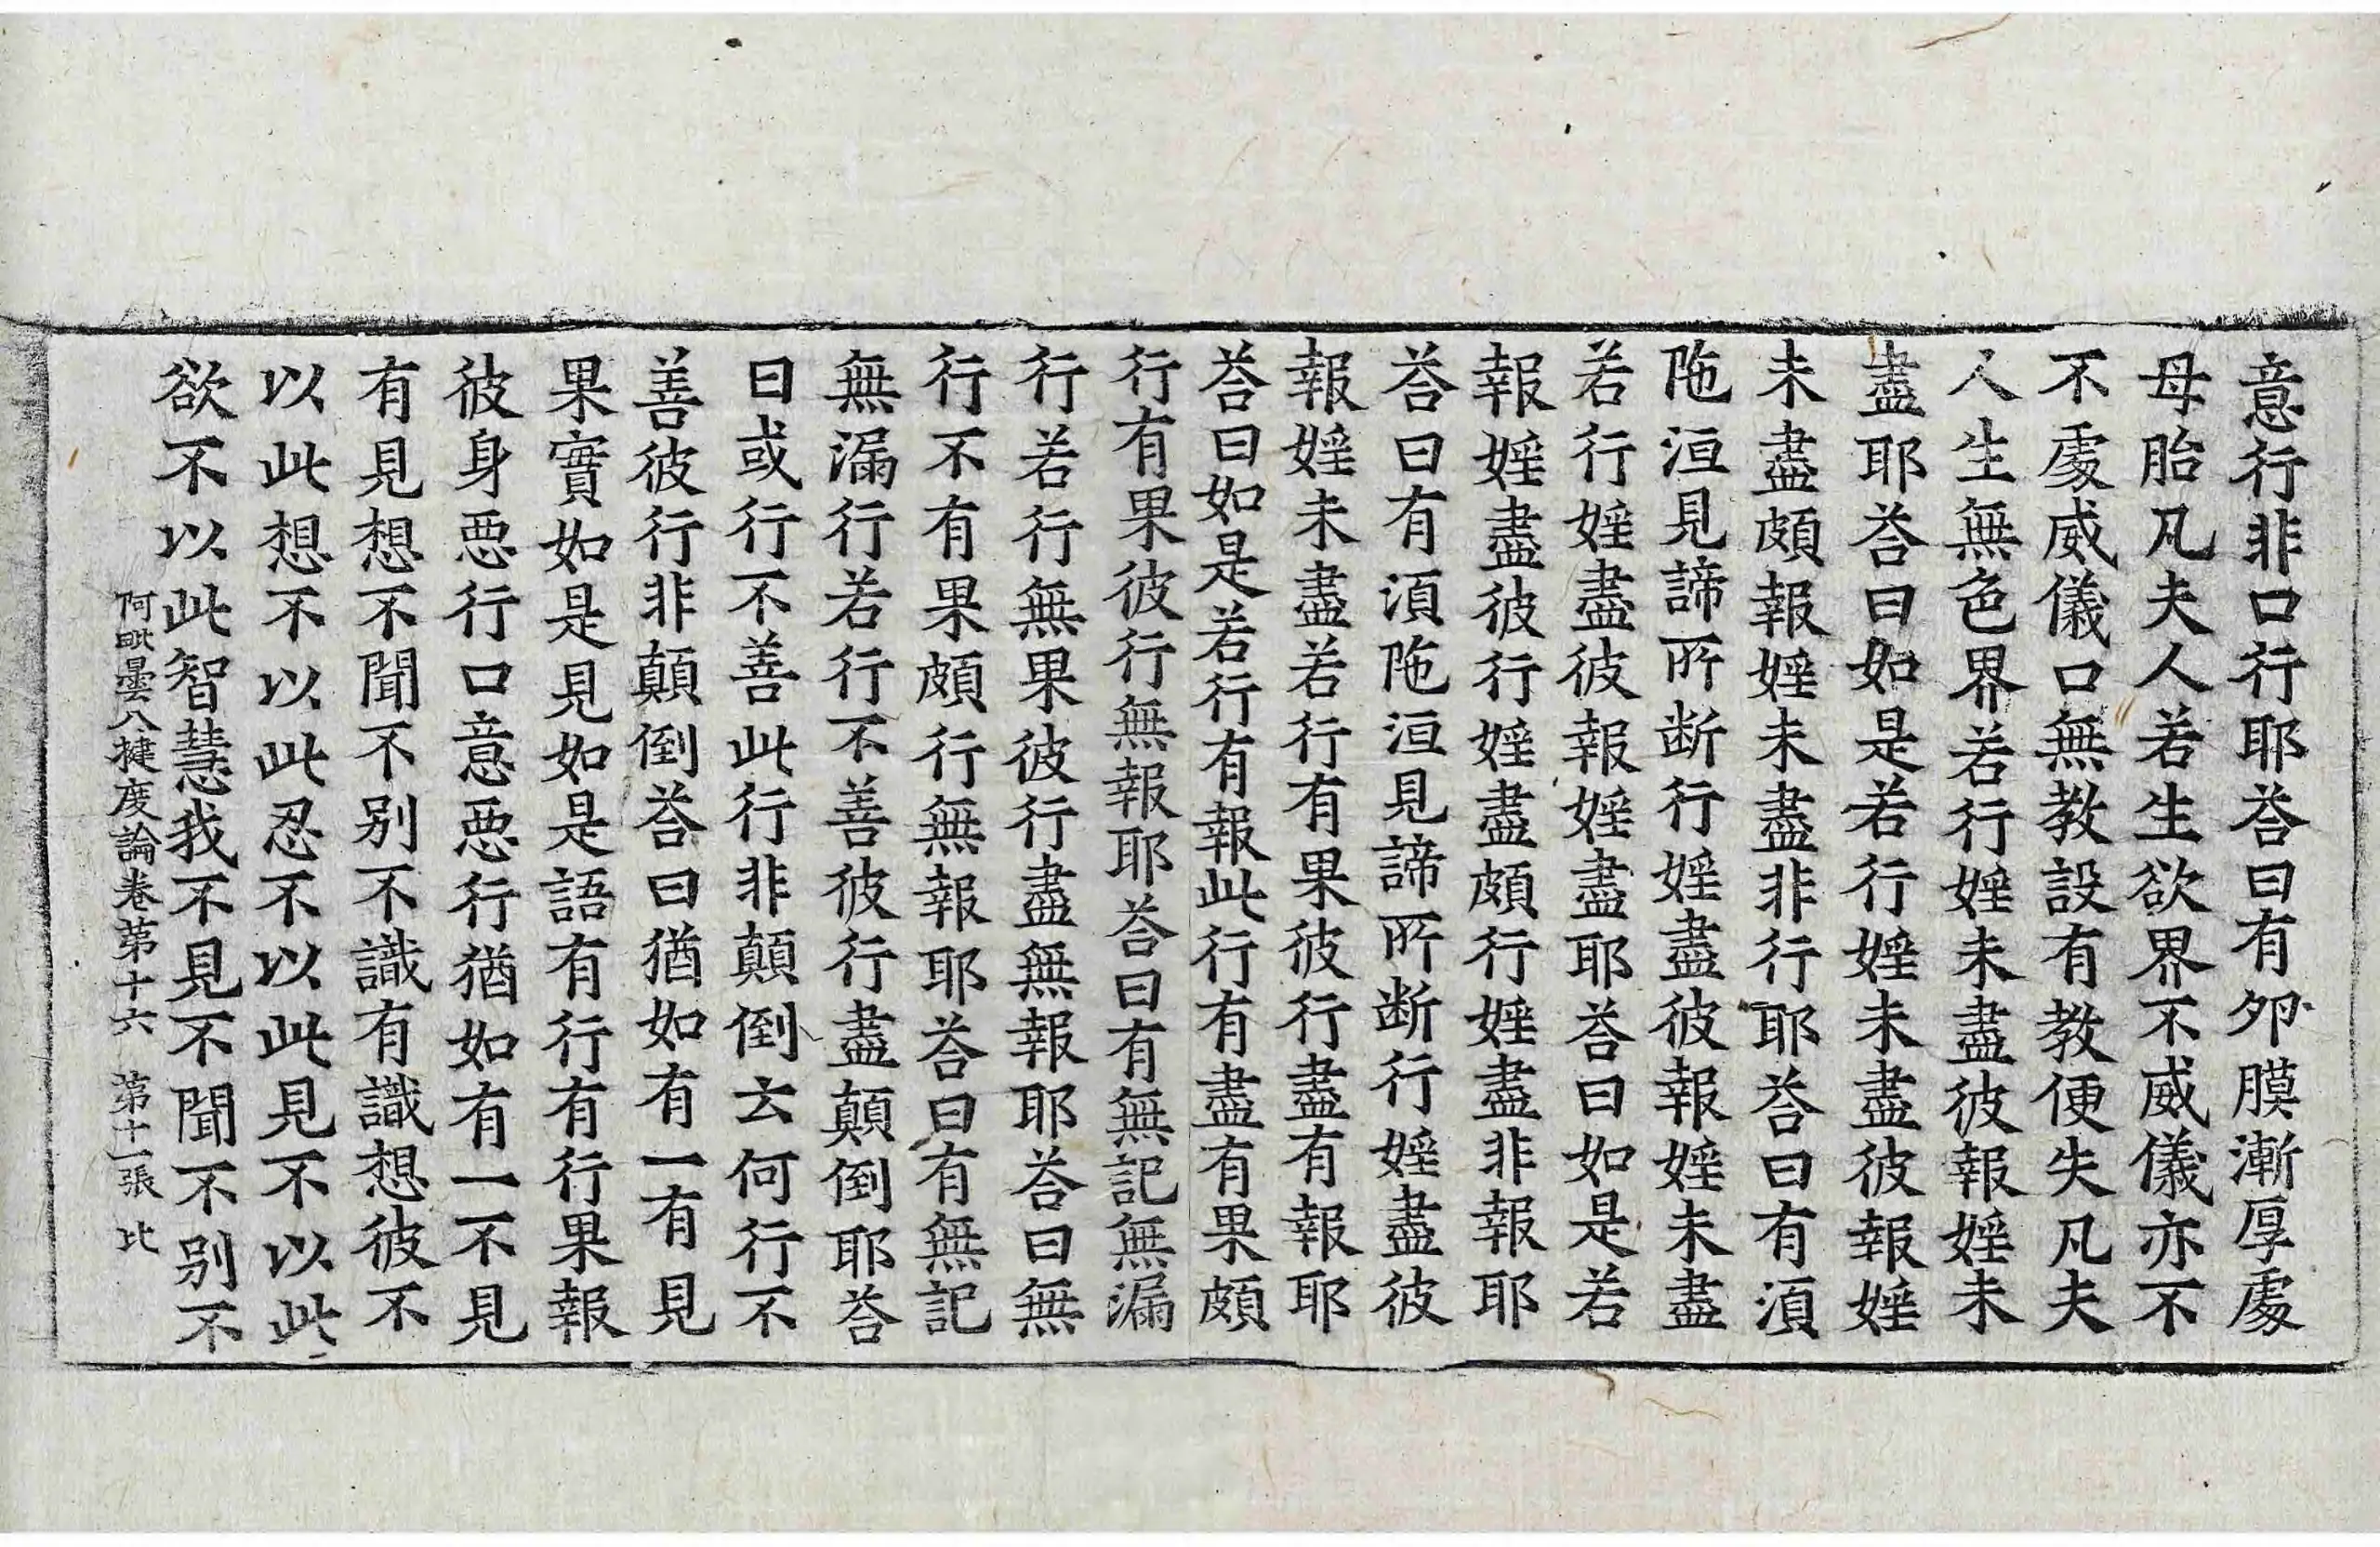 意行非口行耶荅曰有夘膜漸厚處
母胎凡夫人若生欲界不威儀亦不
不處威儀口無教設有教便失凡夫
人生無色界若行婬未盡彼報婬未
盡耶荅曰如是若行婬未盡彼報婬
未盡頗報婬未盡非行耶荅曰有湏
陁洹見諦所断行婬盡彼報婬未盡
若行婬盡彼報婬盡耶荅曰如是若
報婬盡彼行婬盡頗行婬盡非報耶
荅曰有湏陁洹見諦所断行婬盡彼
報婬未盡若行有果彼行盡有報耶
荅曰如是若行有報此行有盡有果頗
行有果彼行無報耶荅曰有無記無漏
行若行無果彼行盡無報耶荅曰無
行不有果頗行無報耶荅曰有無記
無漏行若行不善彼行盡顛倒耶荅
曰或行不善此行非顛倒云何行不
善彼行非顛倒荅曰猶如有一有見
果實如是見如是語有行有行果報
彼身惡行口意惡行猶如有一不見
有見想不聞不别不識有識想彼不
以此想不以此忍不以此見不以此
欲不以此智慧我不見不聞不别不
阿毗曇八揵度論卷第十六 第十一張 比